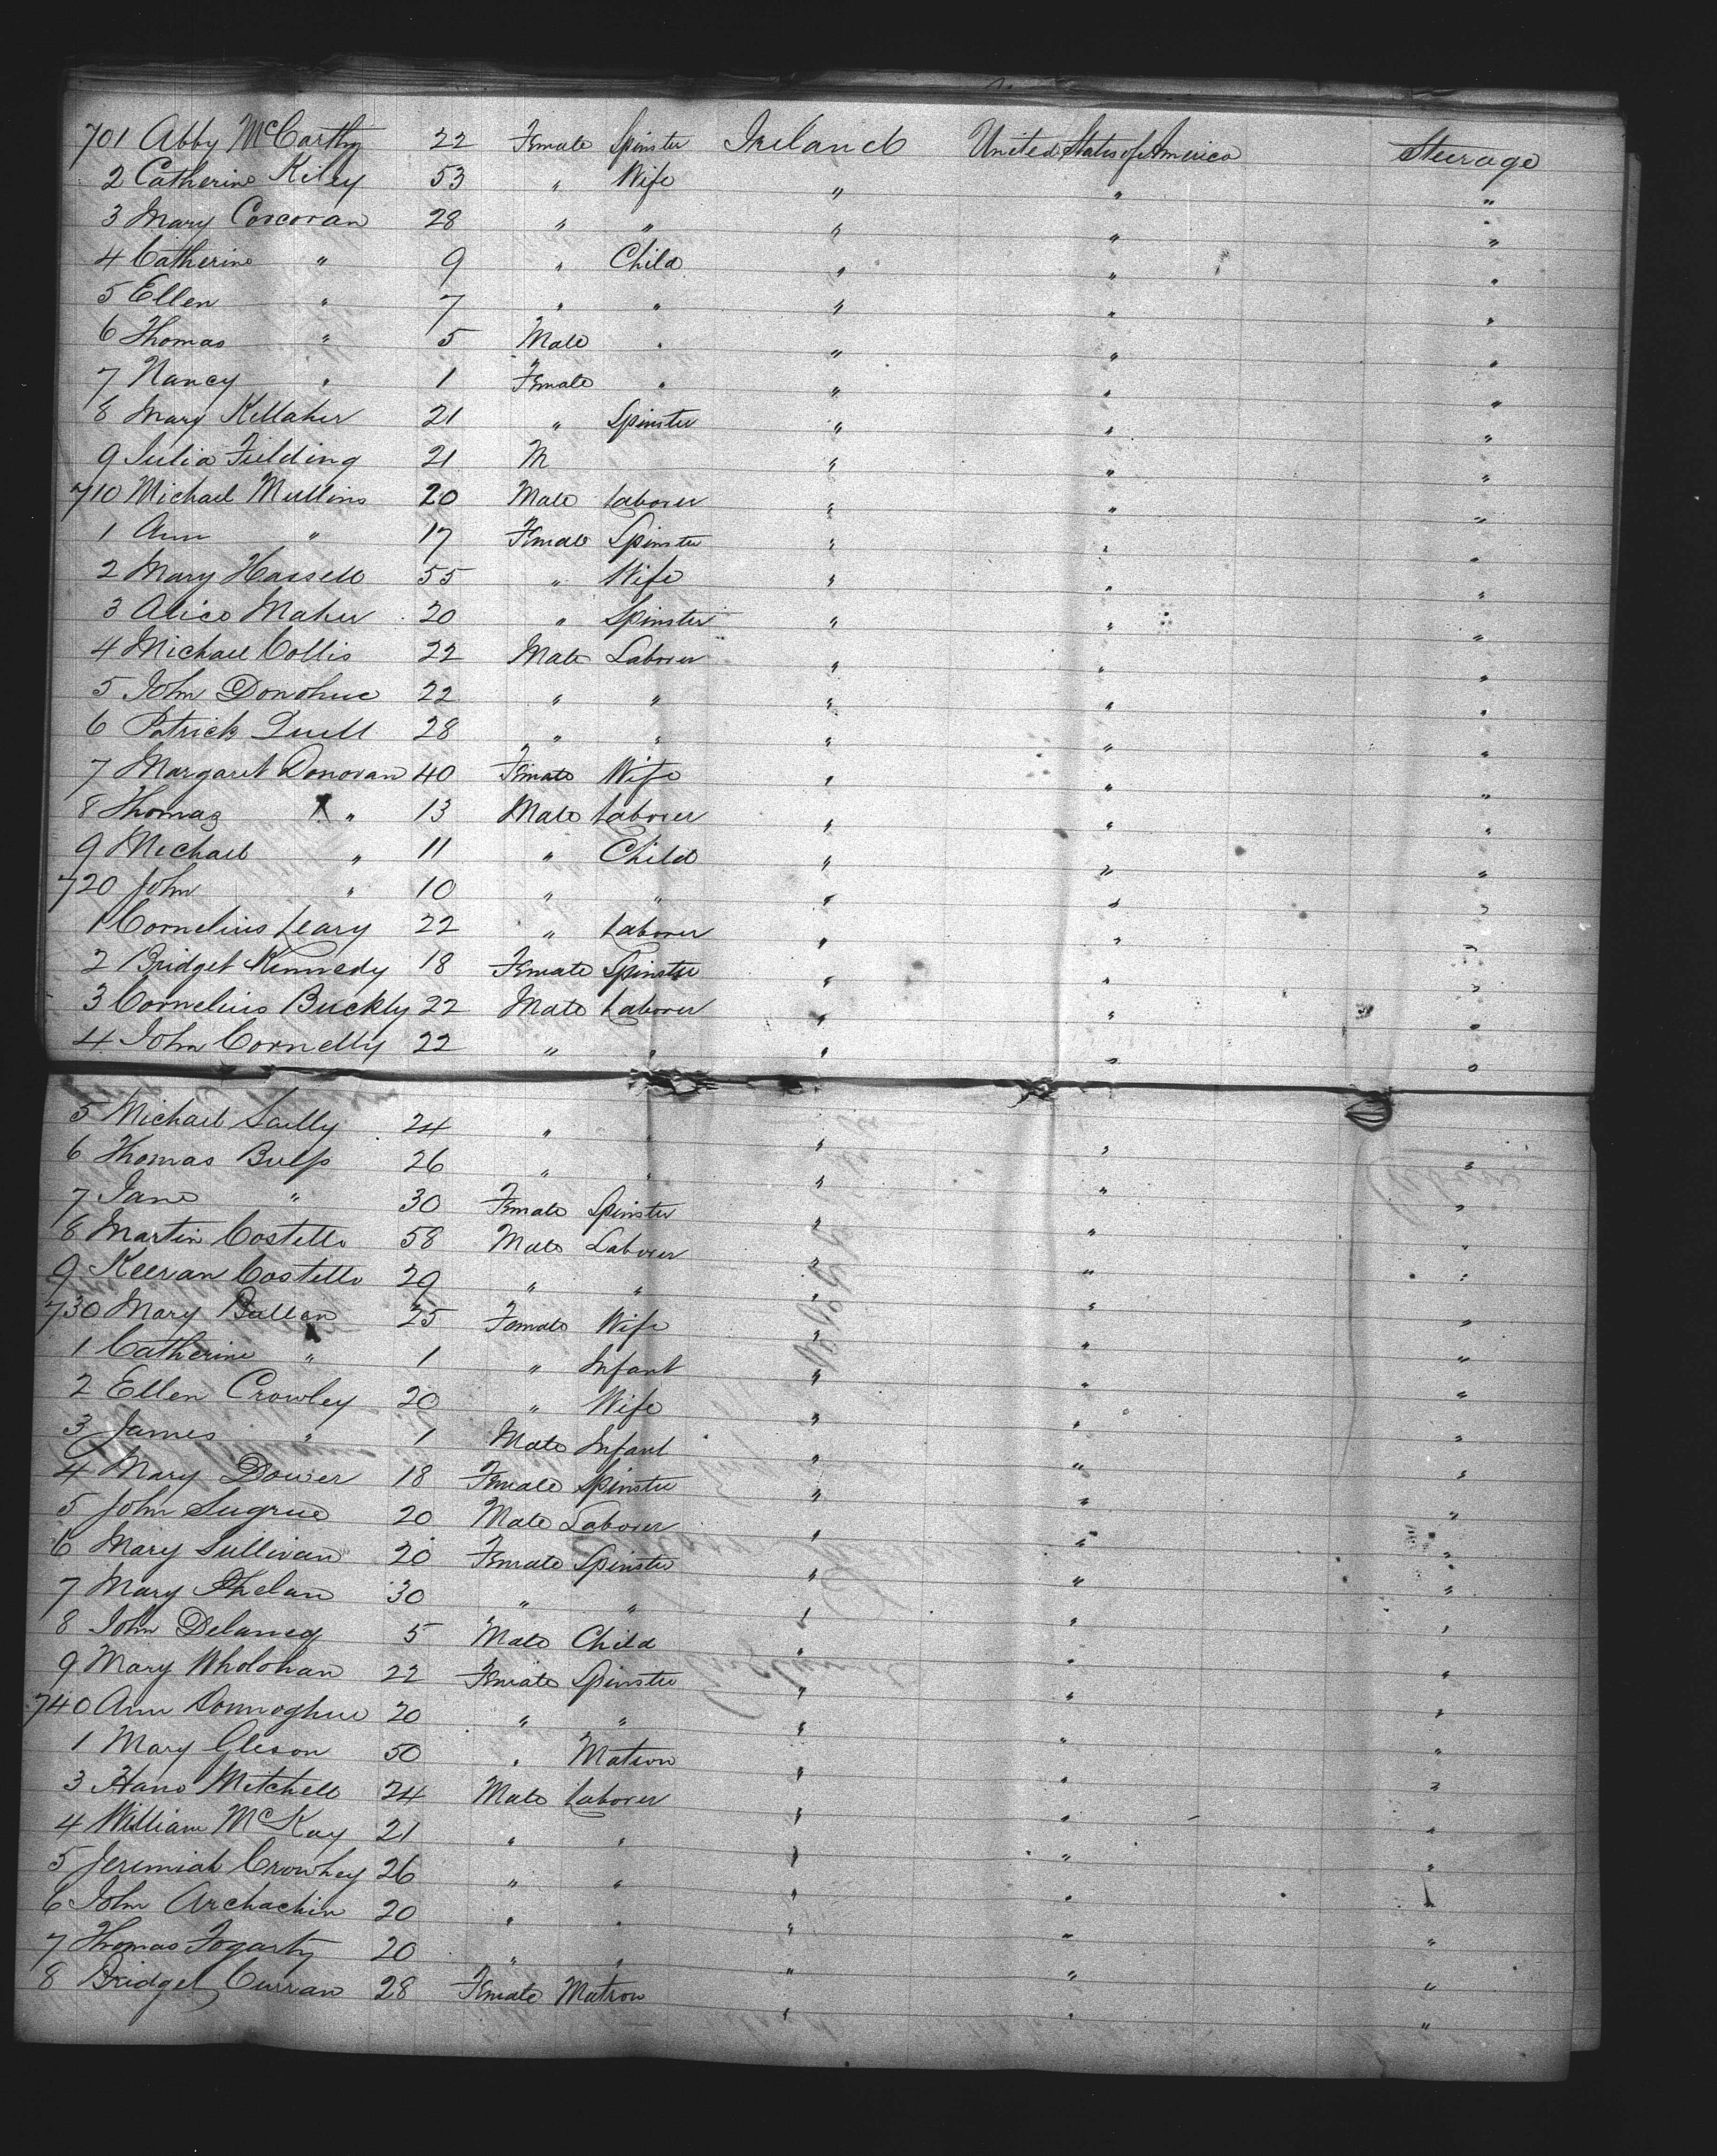 701 Abby McCarthy 22 Female Spinster Ireland United States of America Steerage
2 Catherine Kiley 53 " Wife " " "
3 Mary Corcoran 28 " " " " "
4 Catherine " 9 " Child " " "
5 Ellen " 7 " " " " "
6 Thomas " 5 Male " " " "
7 Nancy " 1 Female " " " "
8 Mary Kellaher 21 " Spinster " " "
9 Julia Fielding 21 M " " "
710 Michael Mullins 20 Male Laborer " " "
1 Ann " 17 Female Spinster " " "
2 Mary Hassell 55 " Wife " " "
3 Alice Maher 20 " Spinster " " "
4 Michael Collis 22 Male Laborer " " "
5 John Donohue 22 " " " " "
6 Patrick Quill 28 " " " " "
7 Margaret Donovan 40 Female Wife " " "
8 Thomas X " 13 Male Laborer " " "
9 Michael " 11 " Child " " "
720 John " 10 " " " " "
1 Cornelius Leary 22 " Laborer " " "
2 Bridget Kennedy 18 Female Spinster " " "
3 Cornelius Buckly 22 Male Laborer " " "
4 John Cornelly 22 " " " " "
5 Michael Scully 24 " " " " "
6 Thomas 26 " " " " "
7 Jane " 30 Female Spinster " " "
8 Martin Costello 58 Male Laborer " " "
9 Keeran Costello 29 " " " " "
730 Mary 25 Female Wife " " "
1 Catherine " 1 " Infant " " "
2 Ellen Crowley 20 " Wife " " "
3 James " 1 Male Infant " " "
4 Mary Dower 18 Female Spinster " " "
5 John Sugrue 20 Male Laborer " " "
6 Mary Sullivan 20 Female Spinster " " "
7 Mary Phelan 30 " " " " "
8 John Delaney 5 Male Child " " "
9 Mary Wholohan 22 Female Spinster " " "
740 Ann Donnoghue 20 " " " " "
1 Mary Gleson 50 " Matron " " "
3 Hans Mitchell 24 Male Laborer " " "
4 William McKay 21 " " " " "
5 Jeremiah Crowhey 26 " " " " "
6 John Archachin 20 " " " " "
7 Thomas Fogarty 20 " " " " "
8 Bridget Curran 28 Female Matron " " "